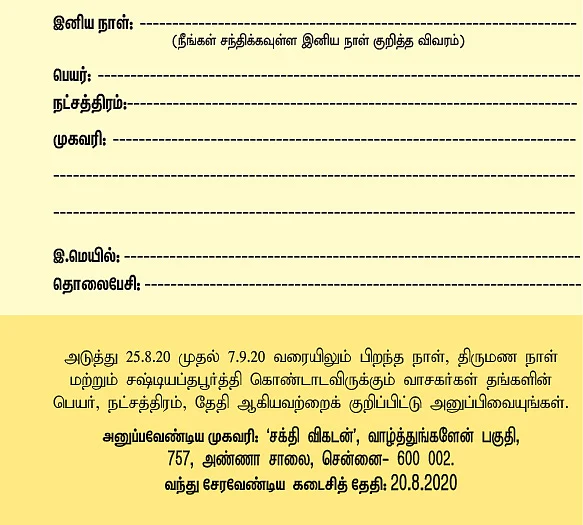 இனிய நாள்: ------------------------------------------------------------
(நீங்கள் சந்திக்கவுள்ள இனிய நாள் குறித்த விவரம்)
பெயர்: ------------------------------------------------------------
நட்சத்திரம்:------------------------------------------------------------
முகவரி: ------------------------------------------------------------
------------------------------------------------------------
------------------------------------------------------------
இ.மெயில்: ------------------------------------------------------------
தொலைபேசி: ------------------------------------------------------------
அடுத்து 25.8.20 முதல் 7.9.20 வரையிலும் பிறந்த நாள், திருமண நாள்
மற்றும் சஷ்டியப்தபூர்த்தி கொண்டாடவிருக்கும் வாசகர்கள் தங்களின்
பெயர், நட்சத்திரம், தேதி ஆகியவற்றைக் குறிப்பிட்டு அனுப்பிவையுங்கள்.
அனுப்பவேண்டிய முகவரி: ‘சக்தி விகடன்’, வாழ்த்துங்களேன் பகுதி,
757, அண்ணா சாலை, சென்னை- 600 002.
வந்து சேரவேண்டிய கடைசித் தேதி: 20.8.2020